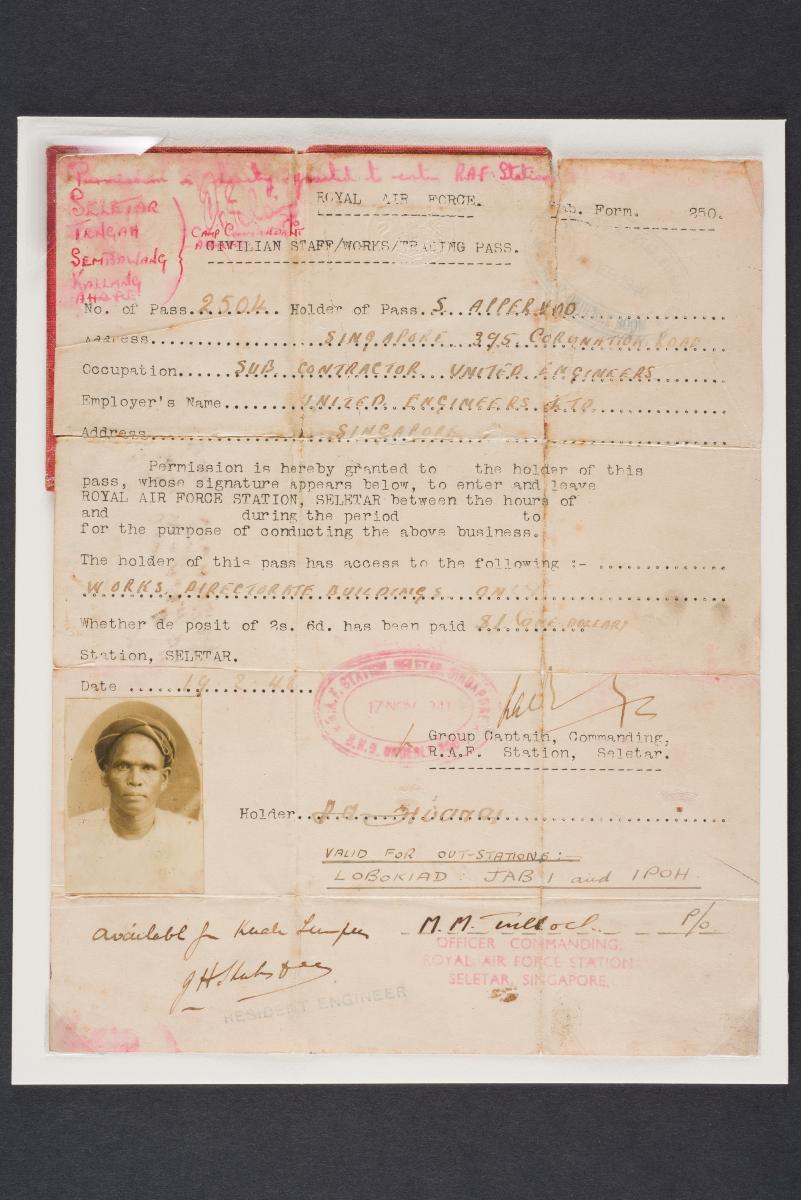 Permission is hereby granted to enter RAF Station
SELETAR
TENGAH
SEMBAWANG
KALLANG
CAMP COMMANDANT
ROYAL AIR FORCE.
Sub. Form. 250.
CIVILIAN STAFF/WORKS/TRADING PASS.
No. of Pass..2504... Holder of Pass.S. APPERUDO
Address..........SINGAPORE 395 CORONATION ROAD
Occupation......SUB CONTRACTOR UNITED ENGINEERS
Employer's Name.......UNITED ENGINEERS LTD.
Address..........SINGAPORE
Permission is hereby granted to the holder of this
pass, whose signature appears below, to enter and leave
ROYAL AIR FORCE STATION, SELETAR between the hours of
and during the period to
for the purpose of conducting the above business.
The holder of this pass has access to the following :- ..............
WORKS DIRECTORATE BUILDINGS ONLY
Whether de posit of 2s. 6d. has been paid $1 (ONE DOLLAR)
Station, SELETAR.
Date ......
R.A.F. STATION SELETAR, SINGAPORE
17 NOV 1941
Group Captain, Commanding,
R.A.F. Station, Seletar.
Holder..
VALID FOR OUT-STATIONS:
LOBOKIAD: JAB 1 and IPOH.
availabl for Kuala Lumpur
M. M. Tulloch. P/o.
OFFICER COMMANDING,
ROYAL AIR FORCE STATION
SELETAR, SINGAPORE.
RESIDENT ENGINEER